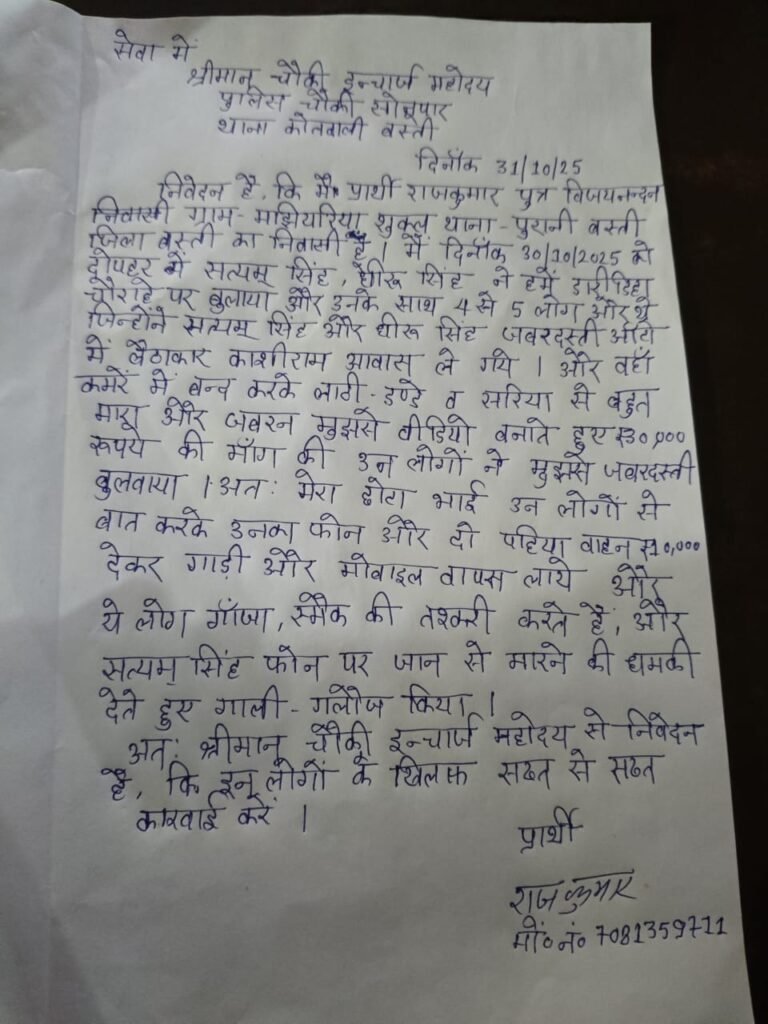 सेवा में
श्रीमान् चौकी इन्चार्ज महोदय
पुलिस चौकी सोनूपार
थाना कोतवाली बस्ती
दिनाँक 31/10/25
निवेदन है, कि मै प्रार्थी राजकुमार पुत्र विजयनन्दन
निवासी ग्राम- मझियरिया शुक्ल थाना - पुरानी बस्ती
जिला बस्ती का निवासी हूँ । मैं दिनाँक 30/10/2025 को
दोपहर में सत्यम् सिंह, धीरू सिंह ने हमें डारीडिहा
चौराहे पर बुलाया और उनके साथ 4 से 5 लोग और थे
जिन्होंने सत्यम् सिंह और धीरू सिंह जबरदस्ती ऑटो
में बैठाकार काशीराम आवास ले गये । और वहाँ
कमरें में बन्द करके लाठी - डण्डे व सरिया से बहुत
मारा और जबरन मुझसे वीडियो बनाते हुए ₹30,000
रूपये की माँग की उन लोगों ने मुझसे जबरदस्ती
बुलवाया । अतः मेरा छोटा भाई उन लोगों से
बात करके उनका फोन और दो पहिया वाहन ₹10,000
देकर गाड़ी और मोबाइल वापस लाये और
ये लोग गाँजा, स्मैक की तश्करी करते हैं, और
सत्यम् सिंह फोन पर जान से मारने की धमकी
देते हुए गाली - गलौज किया ।
अतः श्रीमान् चौकी इन्चार्ज महोदय से निवेदन
है, कि इन लोगों के खिलाफ सख्त से सख्त
कारवाई करें ।
प्रार्थी
राजकुमार
मो० नं० 7081359711